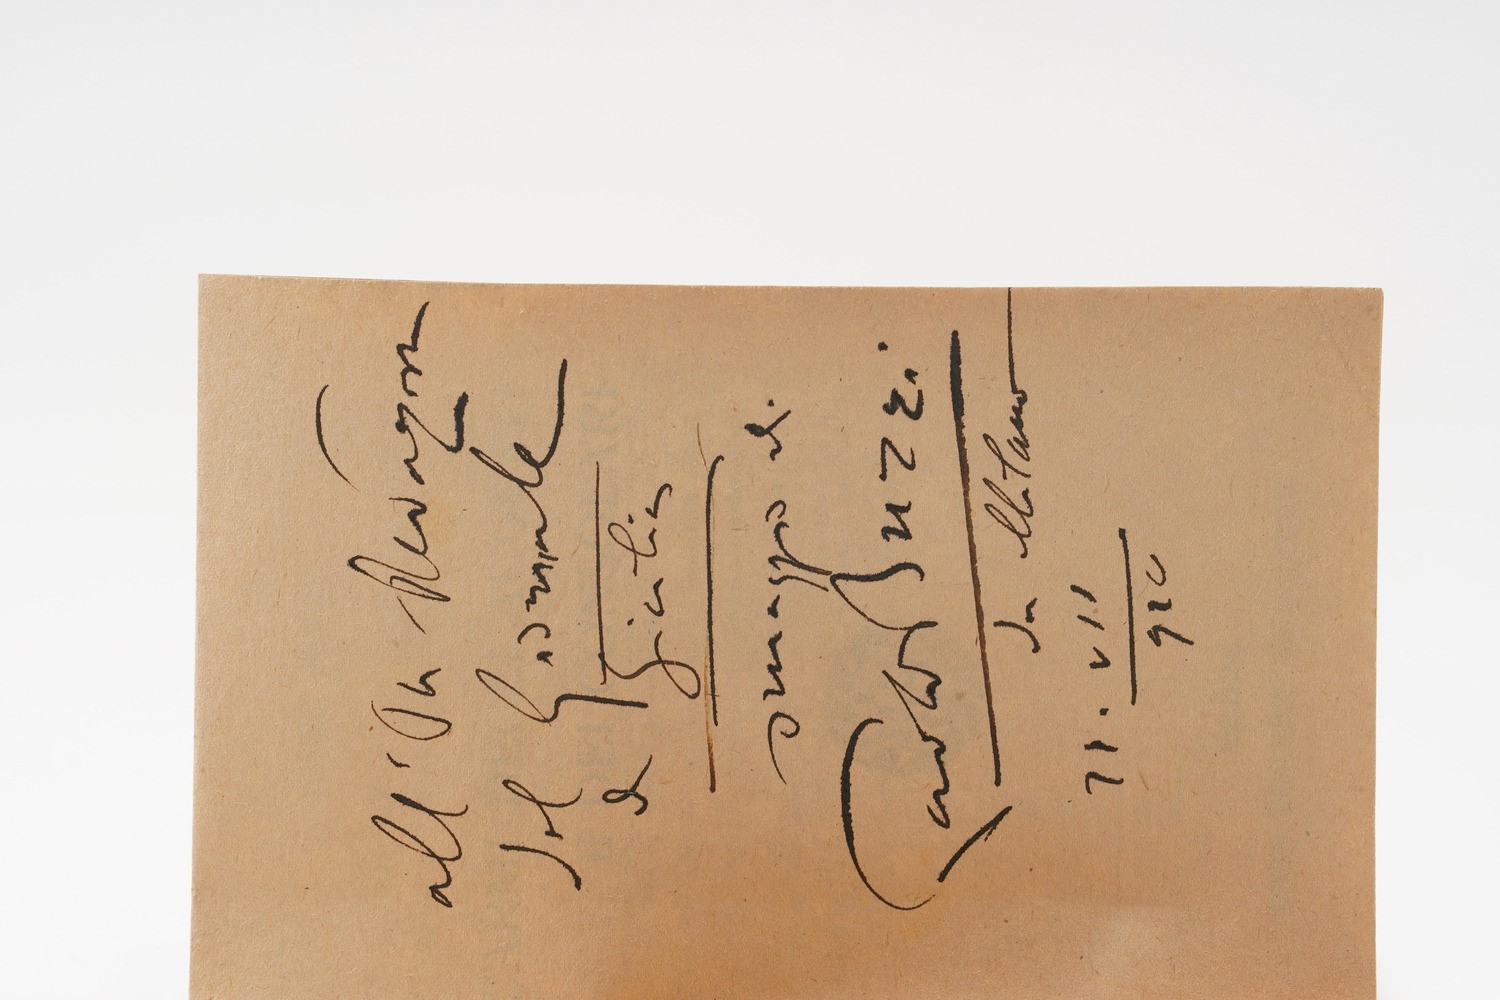 all'On. Redazione
del Giornale
di Sicilia
omaggio di
Carlo Buzzi.
In Milano
21. VII
910